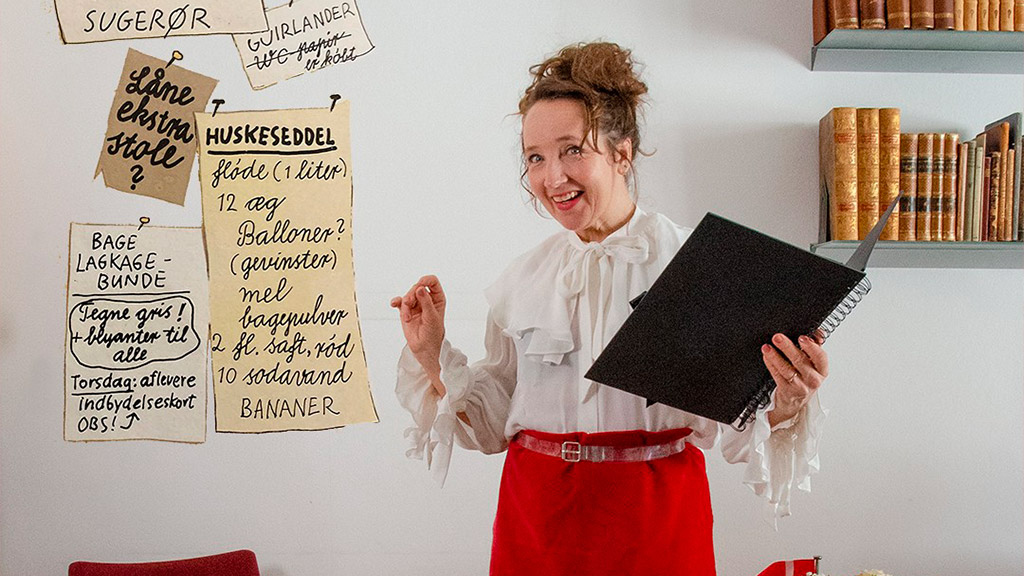 SUGERØR
GUIRLANDER
WC-papir
er købt
Låne
ekstra
stole
?
HUSKESEDDEL
fløde (1 liter)
12 æg
Balloner?
(gevinster)
mel
bagepulver
2 fl. saft, rød
10 sodavand
BANANER
BAGE
LAGKAGE-
BUNDE
Tegne gris!
+ blyanter til
alle
Torsdag: aflevere
indbydelseskort
OBS!